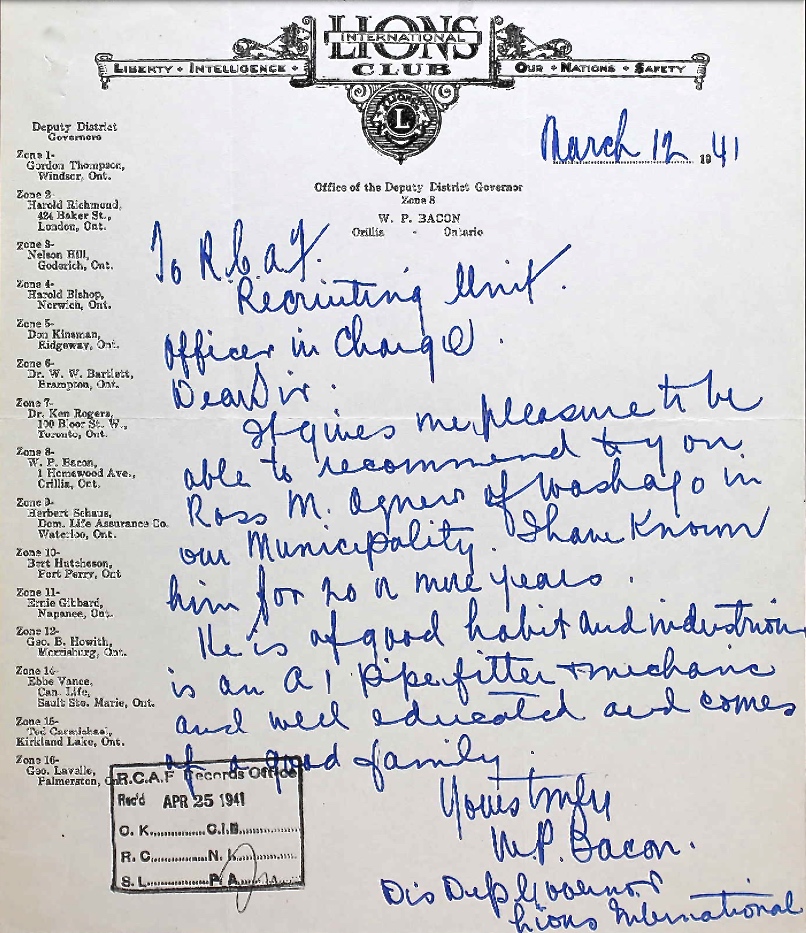 LIONS
INTERNATIONAL
CLUB
LIBERTY • INTELLIGENCE •
OUR • NATIONS • SAFETY
LIONS
L
March 12 1941
Deputy District
Governors
Zone 1-
Gordon Thompson,
Windsor, Ont.
Zone 2-
Harold Richmond,
424 Baker St.,
London, Ont.
Zone 3-
Nelson Hill,
Goderich, Ont.
Zone 4-
Harold Bishop,
Norwich, Ont.
Zone 5-
Don Kinsman,
Ridgeway, Ont.
Zone 6-
Dr. W. W. Bartlett,
Brampton, Ont.
Zone 7-
Dr. Ken Rogers,
100 Bloor St. W.,
Toronto, Ont.
Zone 8-
W. P. Bacon,
1 Homewood Ave.,
Orillia, Ont.
Zone 9-
Herbert Schaus,
Dom. Life Assurance Co.
Waterloo, Ont.
Zone 10-
Bert Hutcheson,
Port Perry, Ont
Zone 11-
Ernie Gibbard,
Napanee, Ont.
Zone 12-
Geo. B. Howith,
Morrisburg, Ont.
Zone 14-
Ebbe Vance,
Can. Life,
Sault Ste. Marie, Ont.
Zone 15-
Ted Carmichael,
Kirkland Lake, Ont.
Zone 16-
Geo. Lavelle,
Palmerston, Ont.
Office of the Deputy District Governor
Zone 8
W. P. BACON
Orillia - Ontario
To R.C.A.F.
Recruiting Unit.
Officer in Charge.
Dear Sir.
It gives me pleasure to be
able to recommend to you
Ross M. Agnew of Washago in
our Municipality. I have Known
him for 20 or more years.
He is of good habit and industrious
is an A1 Pipefitter + mechanic
and well educated and comes
of a good family.
Yours truly
W.P. Bacon.
Dis Dep Governor
Lions International
R.C.A.F Records Office
Rec'd APR 25 1941
O. K. C.I.B.
R. C. N. I.
S. L. P. A.